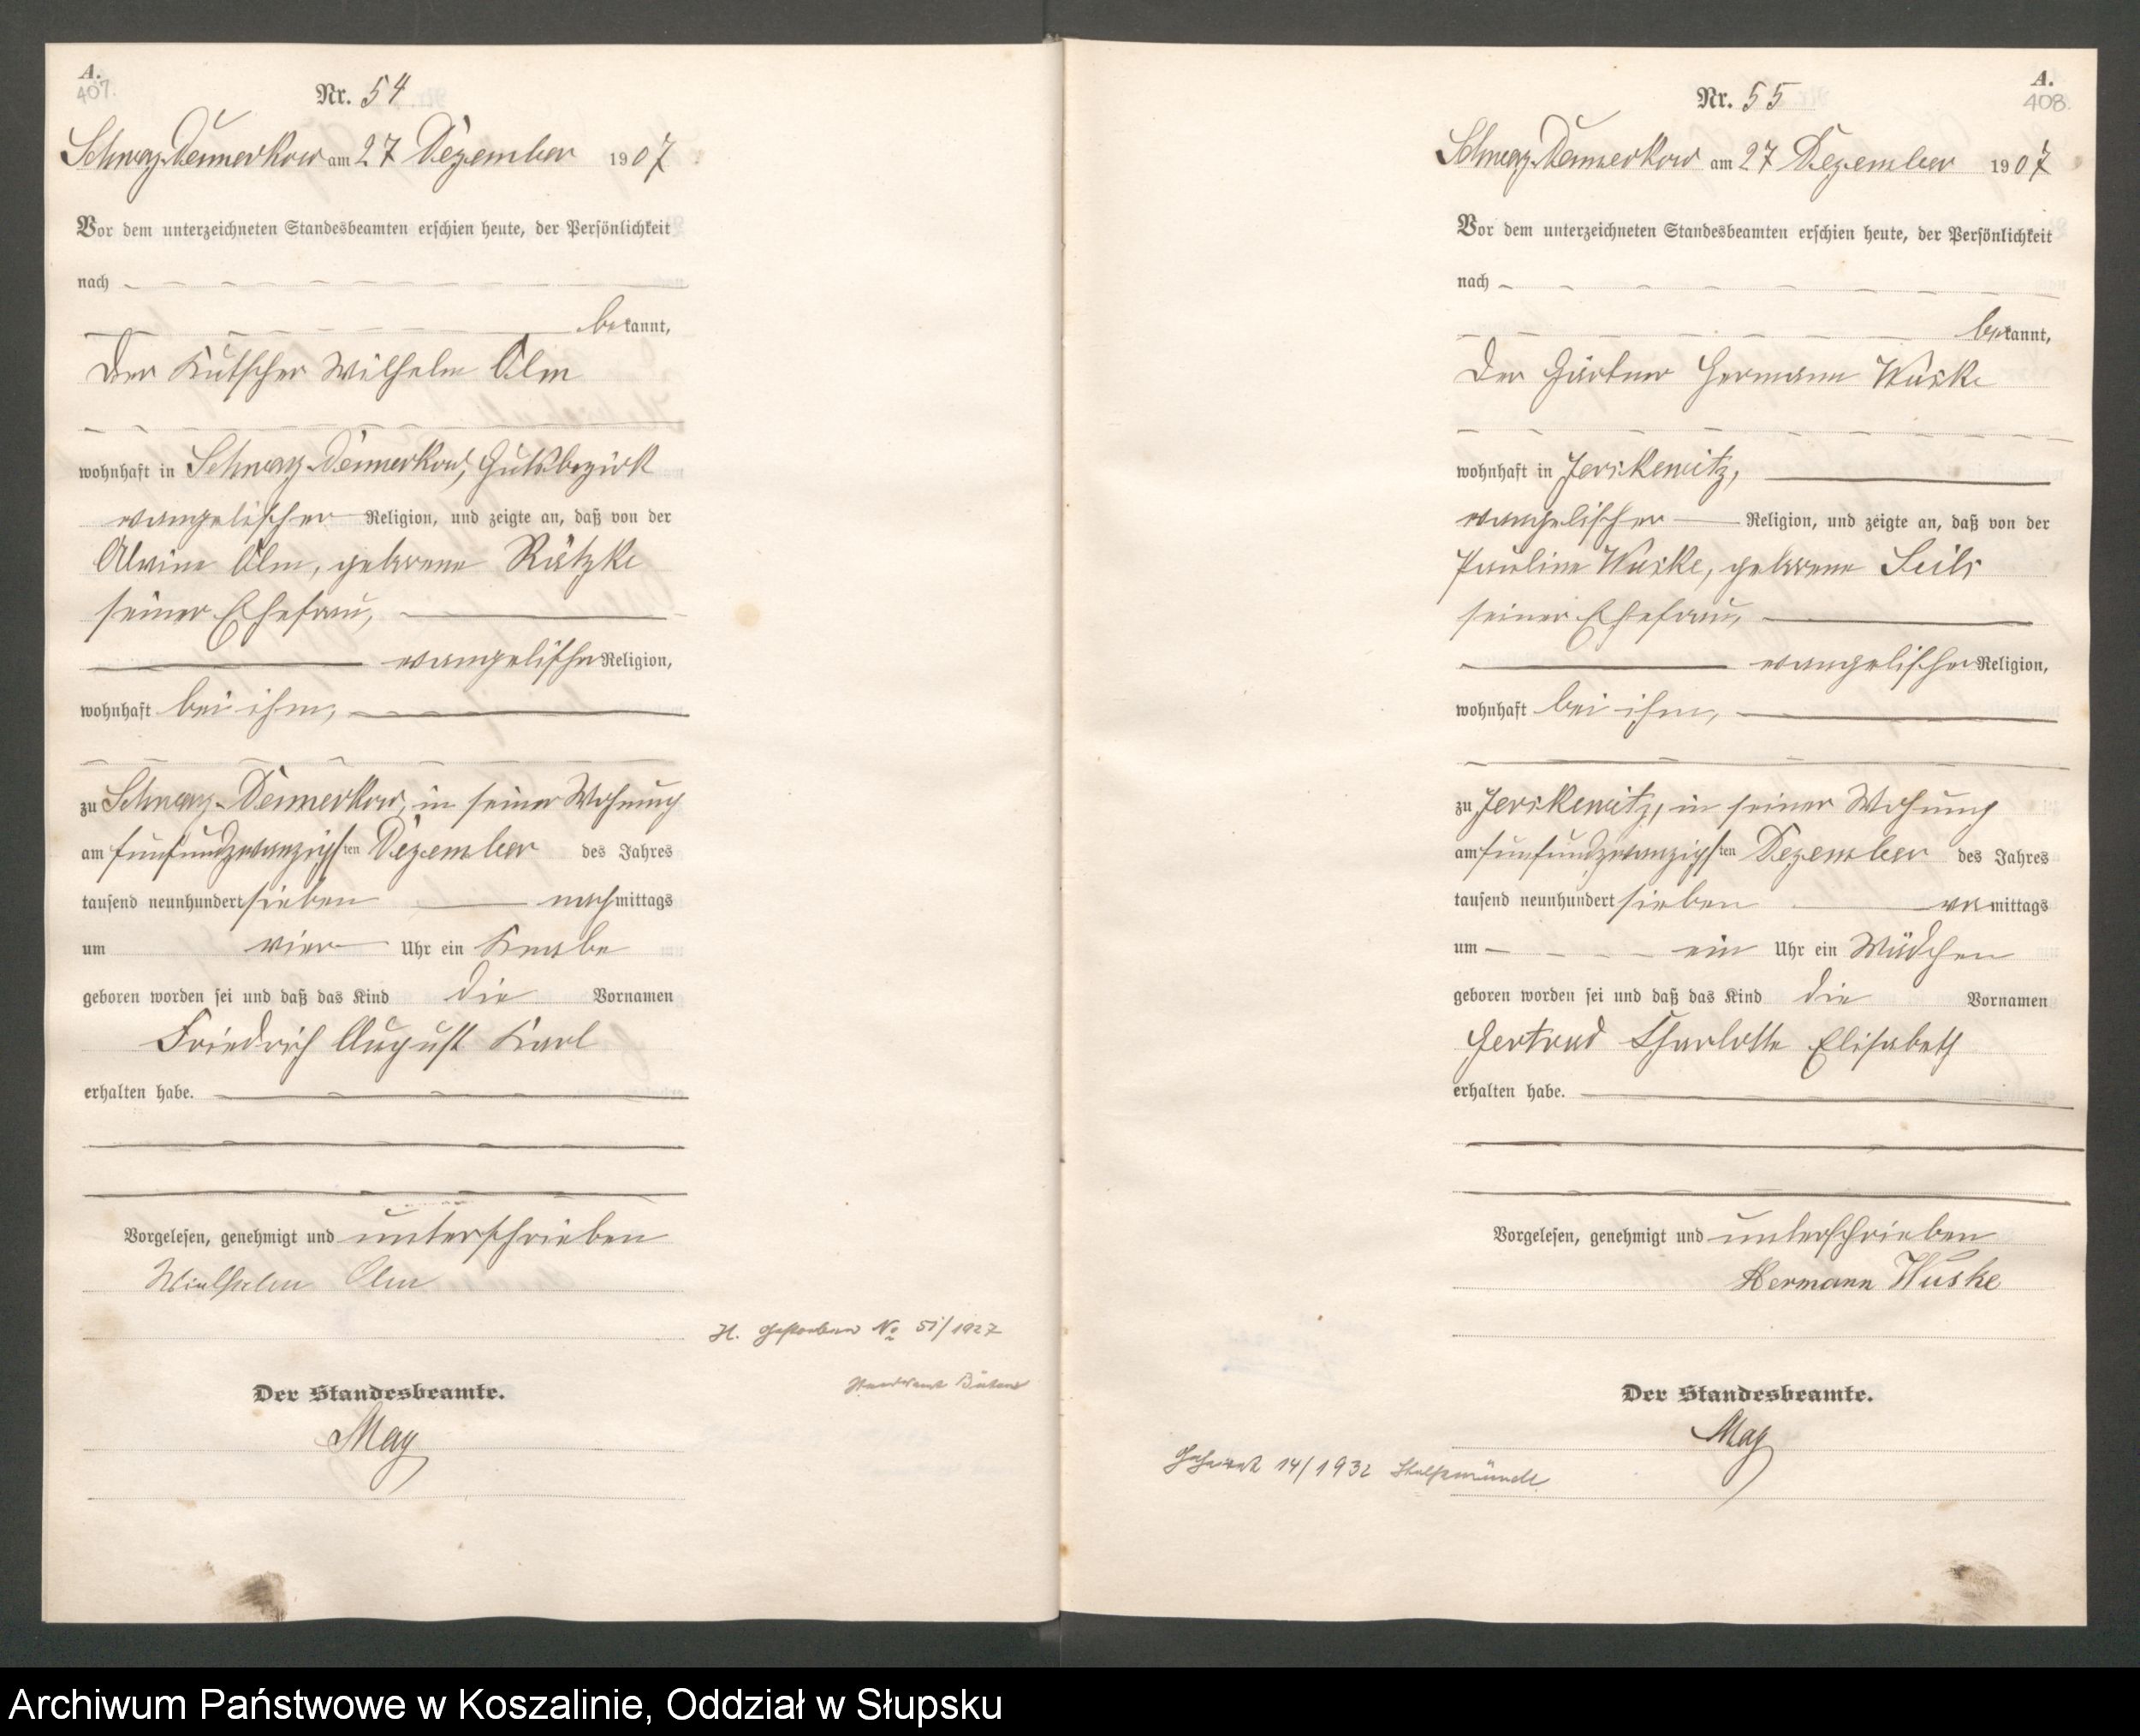 A.
407.
Nr. 54
Schwarz-Damerkow am 27 Dezember 1907
Vor dem unterzeichneten Standesbeamten erschien heute, der Persönlichkeit
nach
bekannt,
der Kutscher Wilhelm Olm
wohnhaft in Schwarz-Damerkow, Gutsbezirk
evangelischer Religion, und zeigte an, daß von der
Alwine Olm, geborene Rätzke
seiner Ehefrau,
evangelischer Religion,
wohnhaft bei ihm,
zu Schwarz-Damerkow, in seiner Wohnung
am fünfundzwanzigsten Dezember des Jahres
tausend neunhundert sieben nachmittags
um vier Uhr ein Knabe
geboren worden sei und daß das Kind die Vornamen
Friedrich August Karl
erhalten habe.
Vorgelesen, genehmigt und unterschrieben
Wielhelm Olm
H. Gestorben No 51/1927
Standesamt Bütow
Der Standesbeamte.
May
A.
408.
Nr. 55
Schwarz-Damerkow am 27 Dezember 1907
Vor dem unterzeichneten Standesbeamten erschien heute, der Persönlichkeit
nach
bekannt,
der Gärtner Hermann Wuske
wohnhaft in Jerskewitz,
evangelischer Religion, und zeigte an, daß von der
Pauline Wuske, geborene Seils
seiner Ehefrau,
evangelischer Religion,
wohnhaft bei ihm,
zu Jerskewitz, in seiner Wohnung
am fünfundzwanzigsten Dezember des Jahres
tausend neunhundert sieben vormittags
um ein Uhr ein Mädchen
geboren worden sei und daß das Kind die Vornamen
Gertrud Charlotte Elisabeth
erhalten habe.
Vorgelesen, genehmigt und unterschrieben
Hermann Wuske
Der Standesbeamte.
May
Geheirat 14/1932 Stolpmünde
Archiwum Państwowe w Koszalinie, Oddział w Słupsku